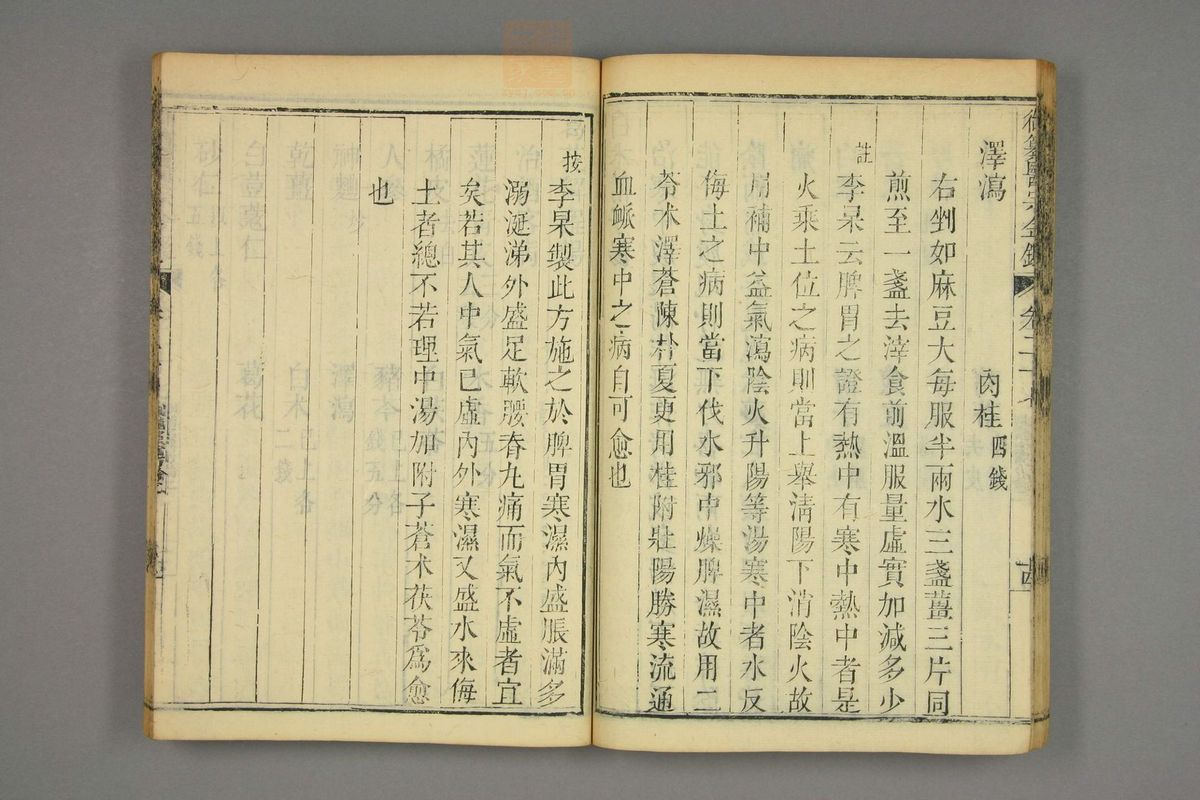 澤瀉　肉桂四錢
右剉如麻豆大每服半兩水三盞薑三片同
煎至一盞去滓食前溫服量虛實加減多少
註
李杲云脾胃之證有熱中有寒中熱中者是
火乘土位之病則當上舉清陽下消陰火故
用補中益氣瀉陰火升陽等湯寒中者水反
侮土之病則當下伐水邪中燥脾濕故用二
苓朮澤蒼陳朴夏更用桂附壯陽勝寒流通
血脈寒中之病自可愈也
按
李杲製此方施之於脾胃寒濕內盛脹滿多
溺涎涕外盛足軟腰脊九痛而氣不虛者宜
矣若其人中氣已虛內外寒濕又盛水來侮
土者總不若理中湯加附子蒼朮茯苓爲愈
也